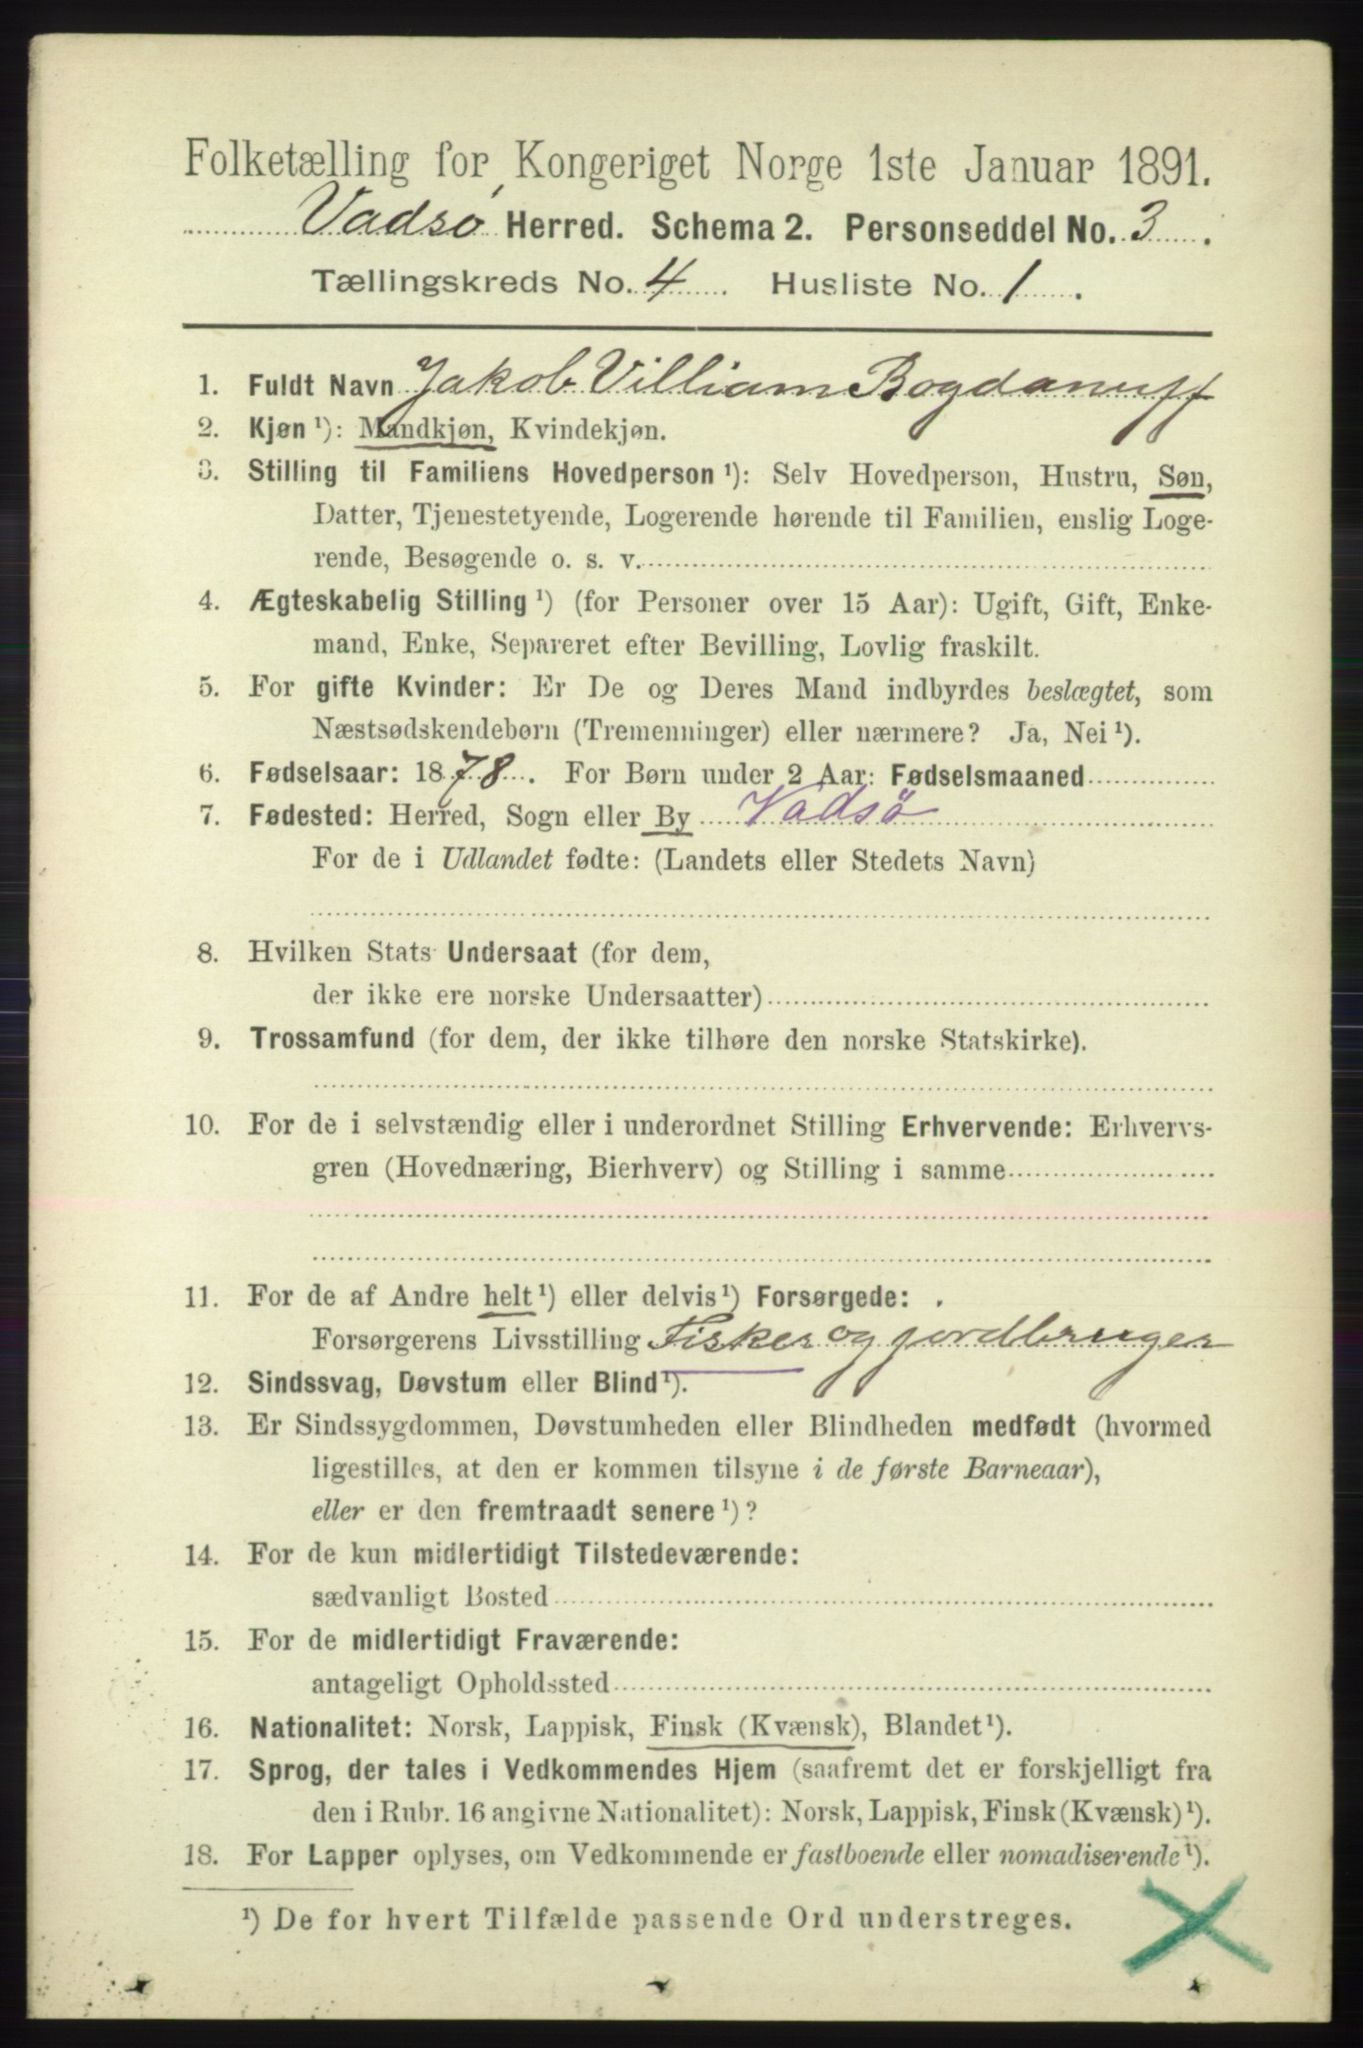 Folketælling for Kongeriget Norge 1ste Januar 1891.
Vadsø Herred. Schema 2. Personseddel No. 3.
Tællingskreds No. 4. Husliste No. 1.
1. Fuldt Navn Jakob Villiam Bogdanuff
2. Kjøn ¹): Mandkjøn, Kvindekjøn.
3. Stilling til Familiens Hovedperson ¹): Selv Hovedperson, Hustru, Søn,
Datter, Tjenestetyende, Logerende hørende til Familien, enslig Loge-
rende, Besøgende o. s. v.
4. Ægteskabelig Stilling ¹) (for Personer over 15 Aar): Ugift, Gift, Enke-
mand, Enke, Separeret efter Bevilling, Lovlig fraskilt.
5. For gifte Kvinder: Er De og Deres Mand indbyrdes beslægtet, som
Næstsødskendebørn (Tremenninger) eller nærmere? Ja, Nei ¹).
6. Fødselsaar: 1878. For Børn under 2 Aar: Fødselsmaaned
7. Fødested: Herred, Sogn eller By Vadsö
For de i Udlandet fødte: (Landets eller Stedets Navn)
8. Hvilken Stats Undersaat (for dem,
der ikke ere norske Undersaatter)
9. Trossamfund (for dem, der ikke tilhøre den norske Statskirke).
10. For de i selvstændig eller i underordnet Stilling Erhvervende: Erhvervs-
gren (Hovednæring, Bierhverv) og Stilling i samme
11. For de af Andre helt ¹) eller delvis ¹) Forsørgede:
Forsørgerens Livsstilling Fisker og jordbruger
12. Sindssvag, Døvstum eller Blind ¹).
13. Er Sindssygdommen, Døvstumheden eller Blindheden medfødt (hvormed
ligestilles, at den er kommen tilsyne i de første Barneaar),
eller er den fremtraadt senere ¹)?
14. For de kun midlertidigt Tilstedeværende:
sædvanligt Bosted
15. For de midlertidigt Fraværende:
antageligt Opholdssted
16. Nationalitet: Norsk, Lappisk, Finsk (Kvænsk), Blandet ¹).
17. Sprog, der tales i Vedkommendes Hjem (saafremt det er forskjelligt fra
den i Rubr. 16 angivne Nationalitet): Norsk, Lappisk, Finsk (Kvænsk) ¹).
18. For Lapper oplyses, om Vedkommende er fastboende eller nomadiserende ¹).
¹) De for hvert Tilfælde passende Ord understreges.